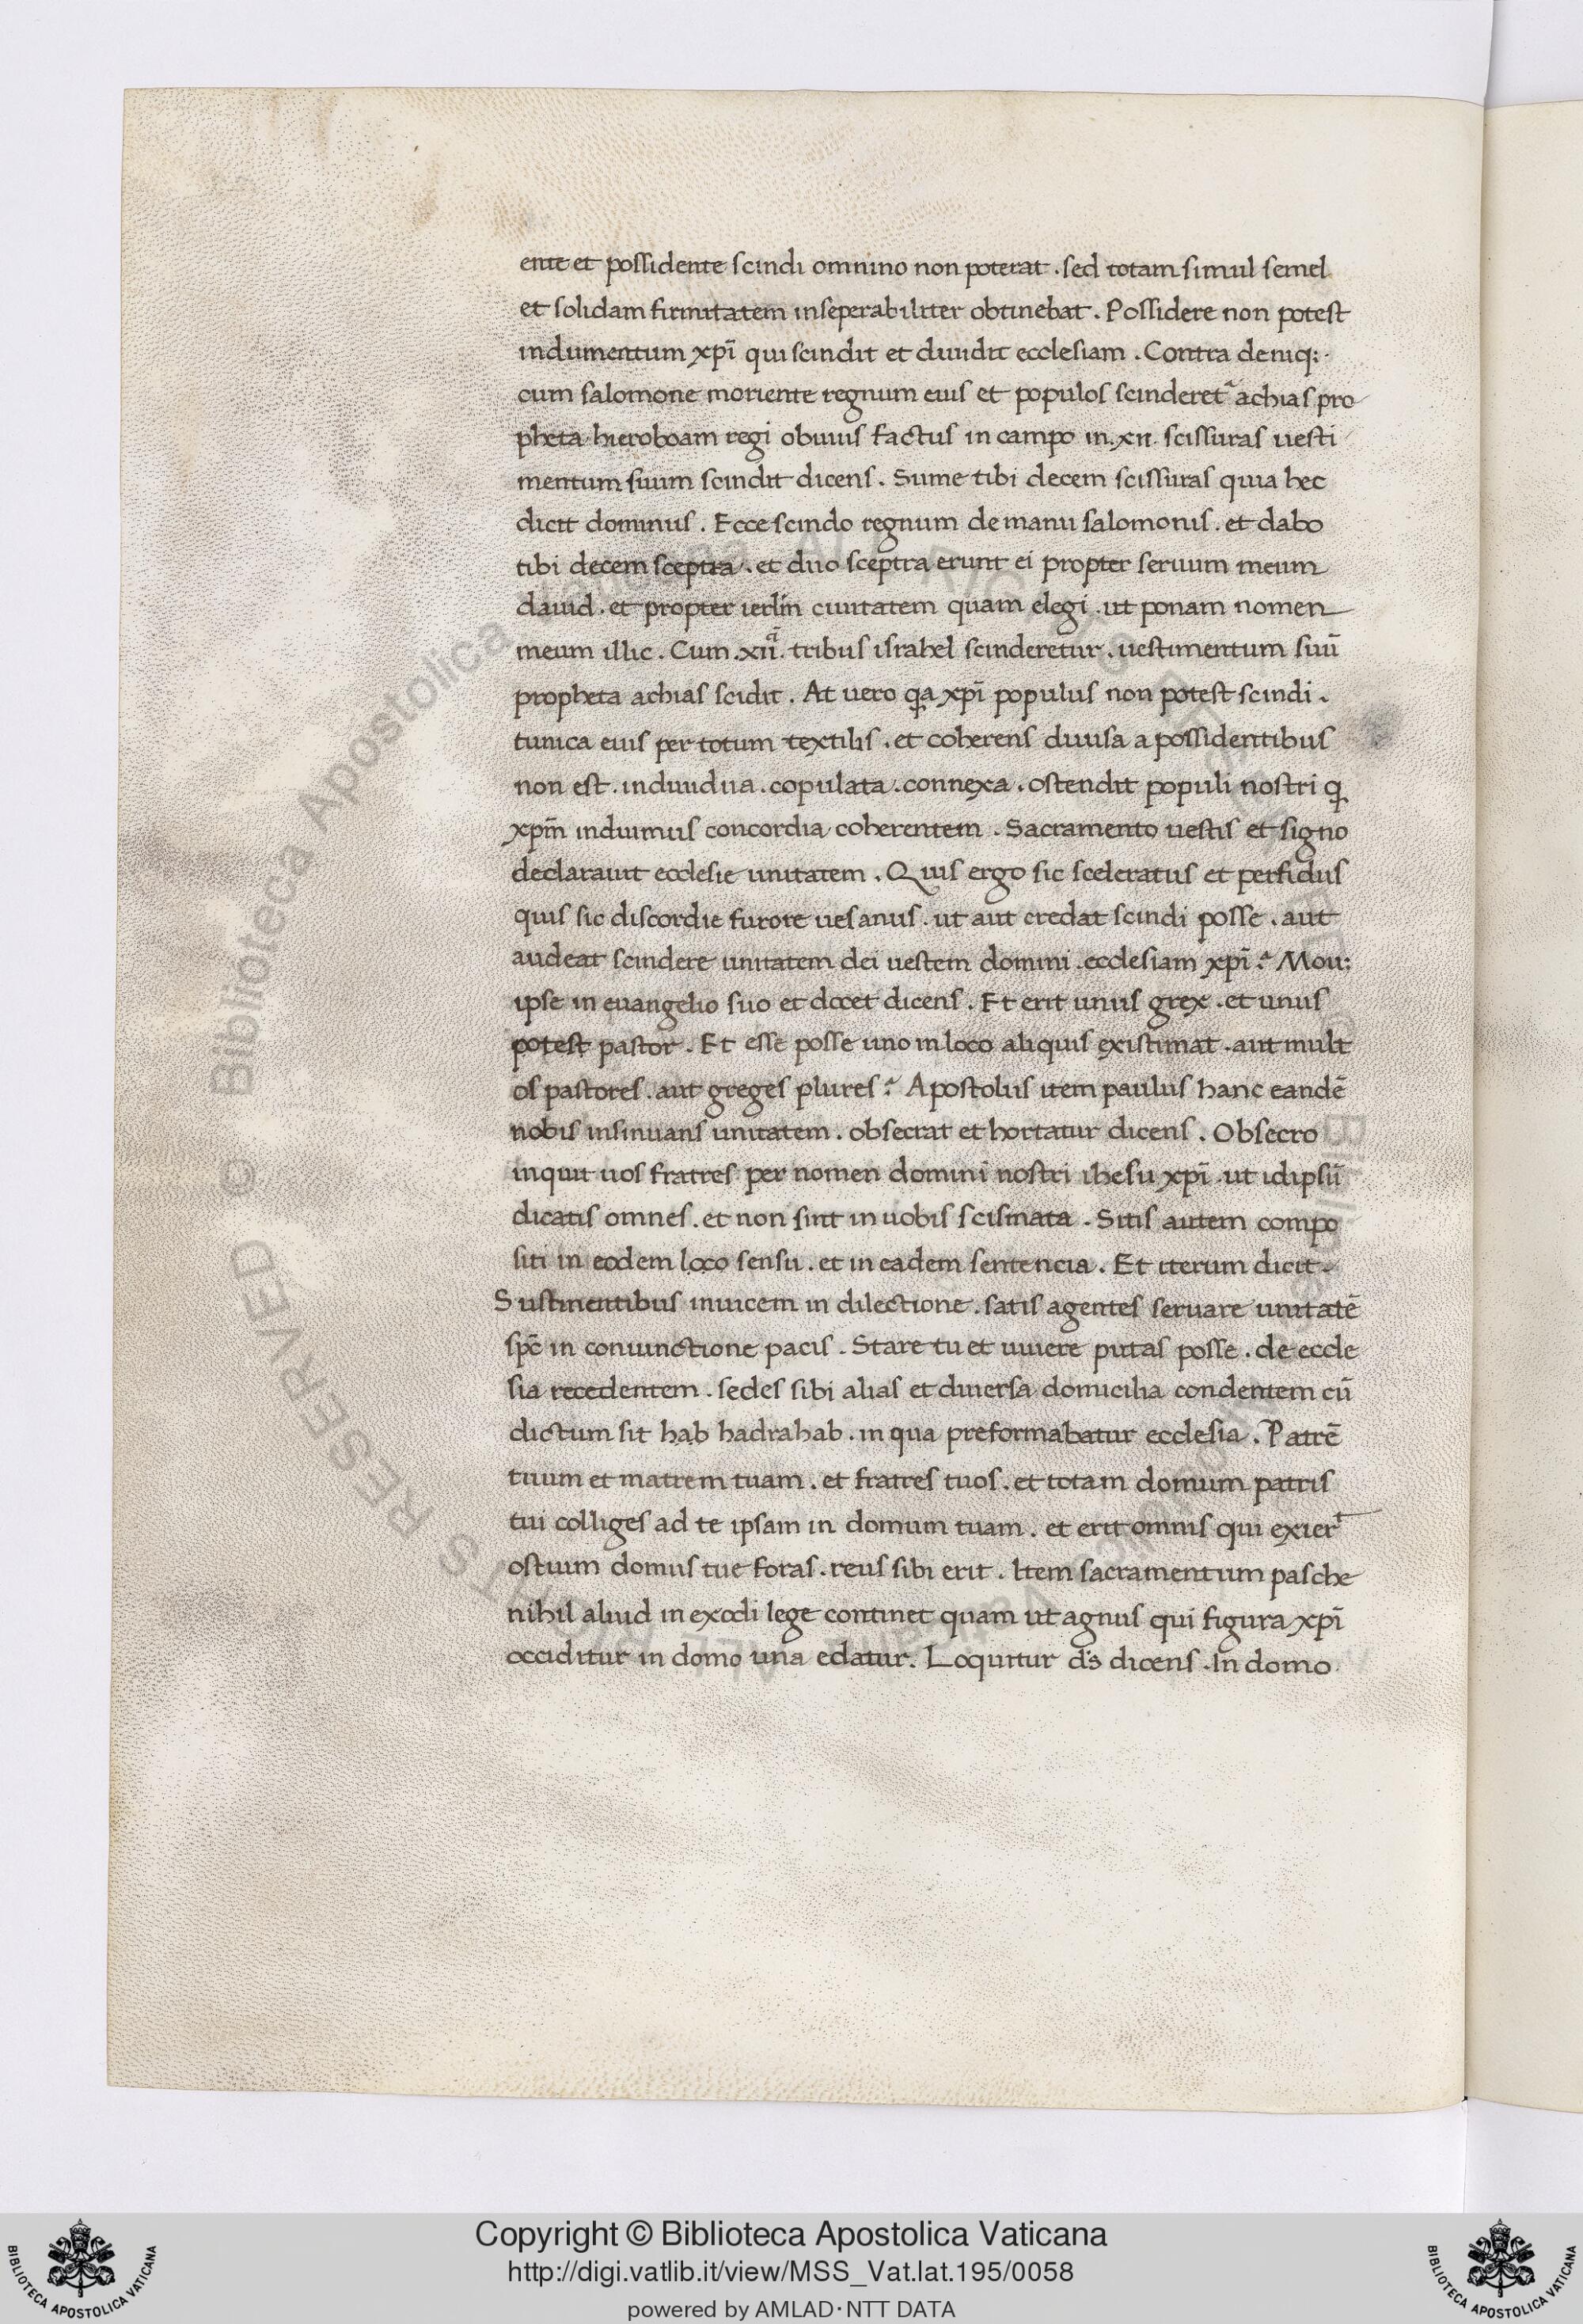 ente et possidente scindi omnino non poterat . sed totam simul semel
et solidam firmitatem inseperabiliter obtinebat . Possidere non potest
indumentum xp̄i qui scindit et diuidit ecclesiam . Contra deniq;
cum salomone moriente regnum eius et populos scinderet᷑ achias pro
pheta hieroboam regi obuius factus in campo in .xii. scissuras uesti
mentum suum scindit dicens . Sume tibi decem scissuras quia hec
dicit dominus . Ecce scindo regnum de manu salomonis . et dabo
tibi decem sceptra . et duo sceptra erunt ei propter seruum meum
dauid . et propter ierl̄m ciuitatem quam elegi . ut ponam nomen
meum illic . Cum .xii. tribus israhel scinderetur . uestimentum suū
propheta achias scidit . At uero qa xp̄i populus non potest scindi .
tunica eius per totum textilis . et coherens diuisa a possidentibus
non est . indiuidua . copulata . connexa . ostendit populi nostri q
xpm̄ induimus concordia coherentem . Sacramento uestis et signo
declarauit ecclesie unitatem . Quis ergo sic sceleratus et perfidus
quis sic discordie furore uesanus . ut aut credat scindi posse . aut
audeat scindere unitatem dei uestem domini . ecclesiam xp̄i ? Mou;
ipse in euangelio suo et docet dicens . Et erit unus grex . et unus
potest pastor . Et esse posse uno in loco aliquis existimat . aut mult
os pastores . aut greges plures ? Apostolus item paulus hanc eandē
nobis insinuans unitatem . obsecrat et hortatur dicens . Obsecro
inquit uos fratres per nomen domini nostri ihesu xp̄i . ut idipsū
dicatis omnes . et non sint in uobis scismata . Sitis autem compo
siti in eodem loco sensu . et in eadem sentencia . Et iterum dicit .
Sustinentibus inuicem in dilectione . satis agentes seruare unitatē
spc̄ in coniunctione pacis . Stare tu et uiuere putas posse . de eccle
sia recedentem . sedes sibi alias et diuersa domicilia condentem cū
dictum sit hab hadrahab . in qua preformabatur ecclesia . Patrē
tuum et matrem tuam . et fratres tuos . et totam domum patris
tui colliges ad te ipsam in domum tuam . et erit omnis qui exierᵗ
ostium domus tue foras . reus sibi erit . Item sacramentum pasche
nihil aliud in exodi lege continet quam ut agnus qui figura xp̄i
occiditur in domo una edatur . Loquitur d̄s dicens . In domo
Copyright © Biblioteca Apostolica Vaticana
http://digi.vatlib.it/view/MSS_Vat.lat.195/0058
powered by AMLAD·NTT DATA
BIBLIOTECA APOSTOLICA VATICANA
BIBLIOTECA APOSTOLICA VATICANA